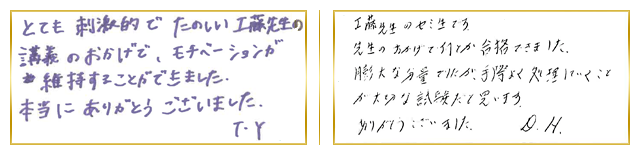 とても刺激的でたのしい工藤先生の
講義のおかげで、モチベーションが
維持することができました。
本当にありがとうございました。
T.Y
工藤先生のゼミ生です
先生のおかげで何とか合格できました。
膨大な分量でしたが、手際よく処理していくこと
が大切な試験だと思います。
ありがとうございました。 D.H.